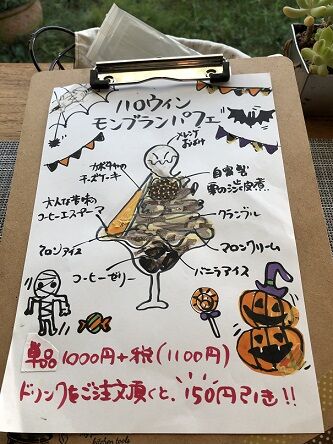 ハロウィン
モンブランパフェ
メレンゲ
おばけ
カボチャの
チーズケーキ
自家製
栗の渋皮煮
大人な苦味の
コーヒーエスプーマ
クランブル
マロンアイス
マロンクリーム
コーヒーゼリー
バニラアイス
単品 1000円+税(1100円)
ドリンクをご注文頂くと、150円引き!!
kitchen tools